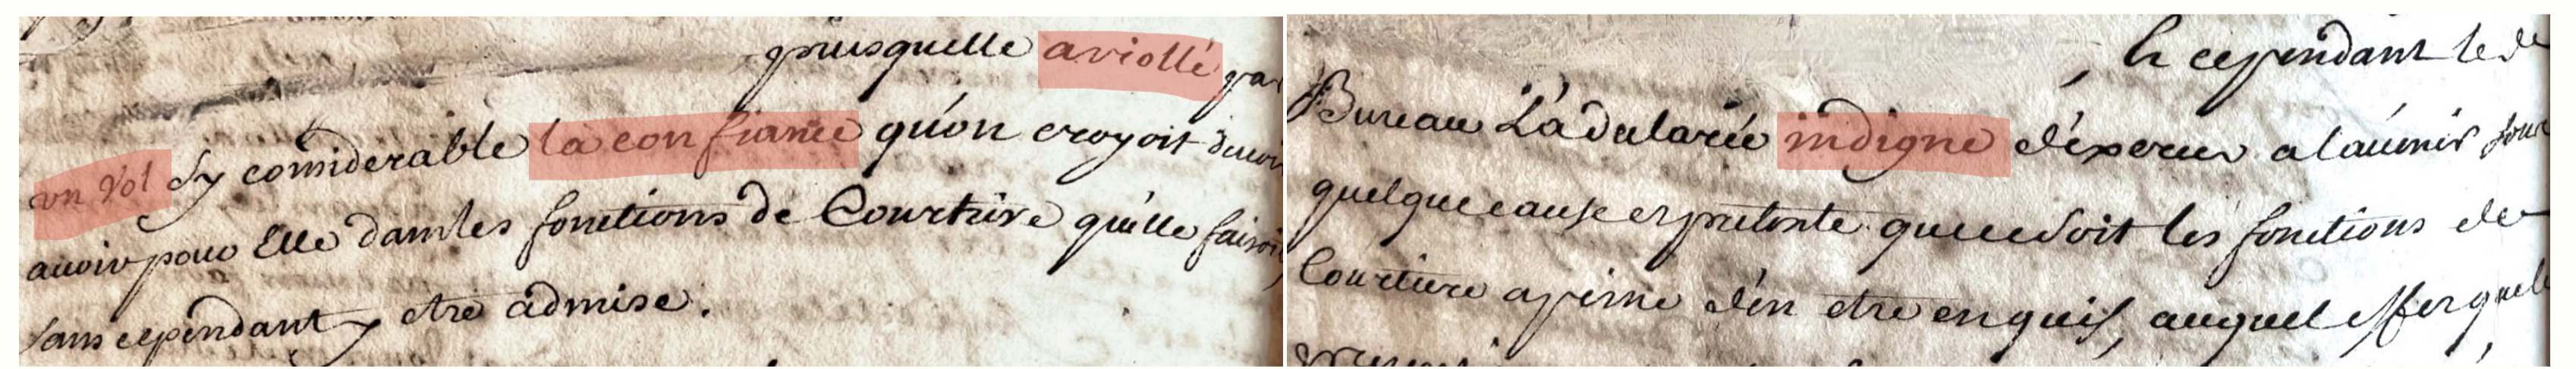 puisquelle a viollé par
un Vol sy considerable la confiance qu'on croyoit devoir
avoir pour Elle dans les fonctions de Courtière qu'elle faisoit
sans cependant y etre admise.
Et cependant le de
Bureau L'a déclarée indigne d'éxercer a lávenir sous
quelque cause et pretexte que ce soit les fonctions de
Courtiere a peine d'en etre enquis, auquel effet quelle